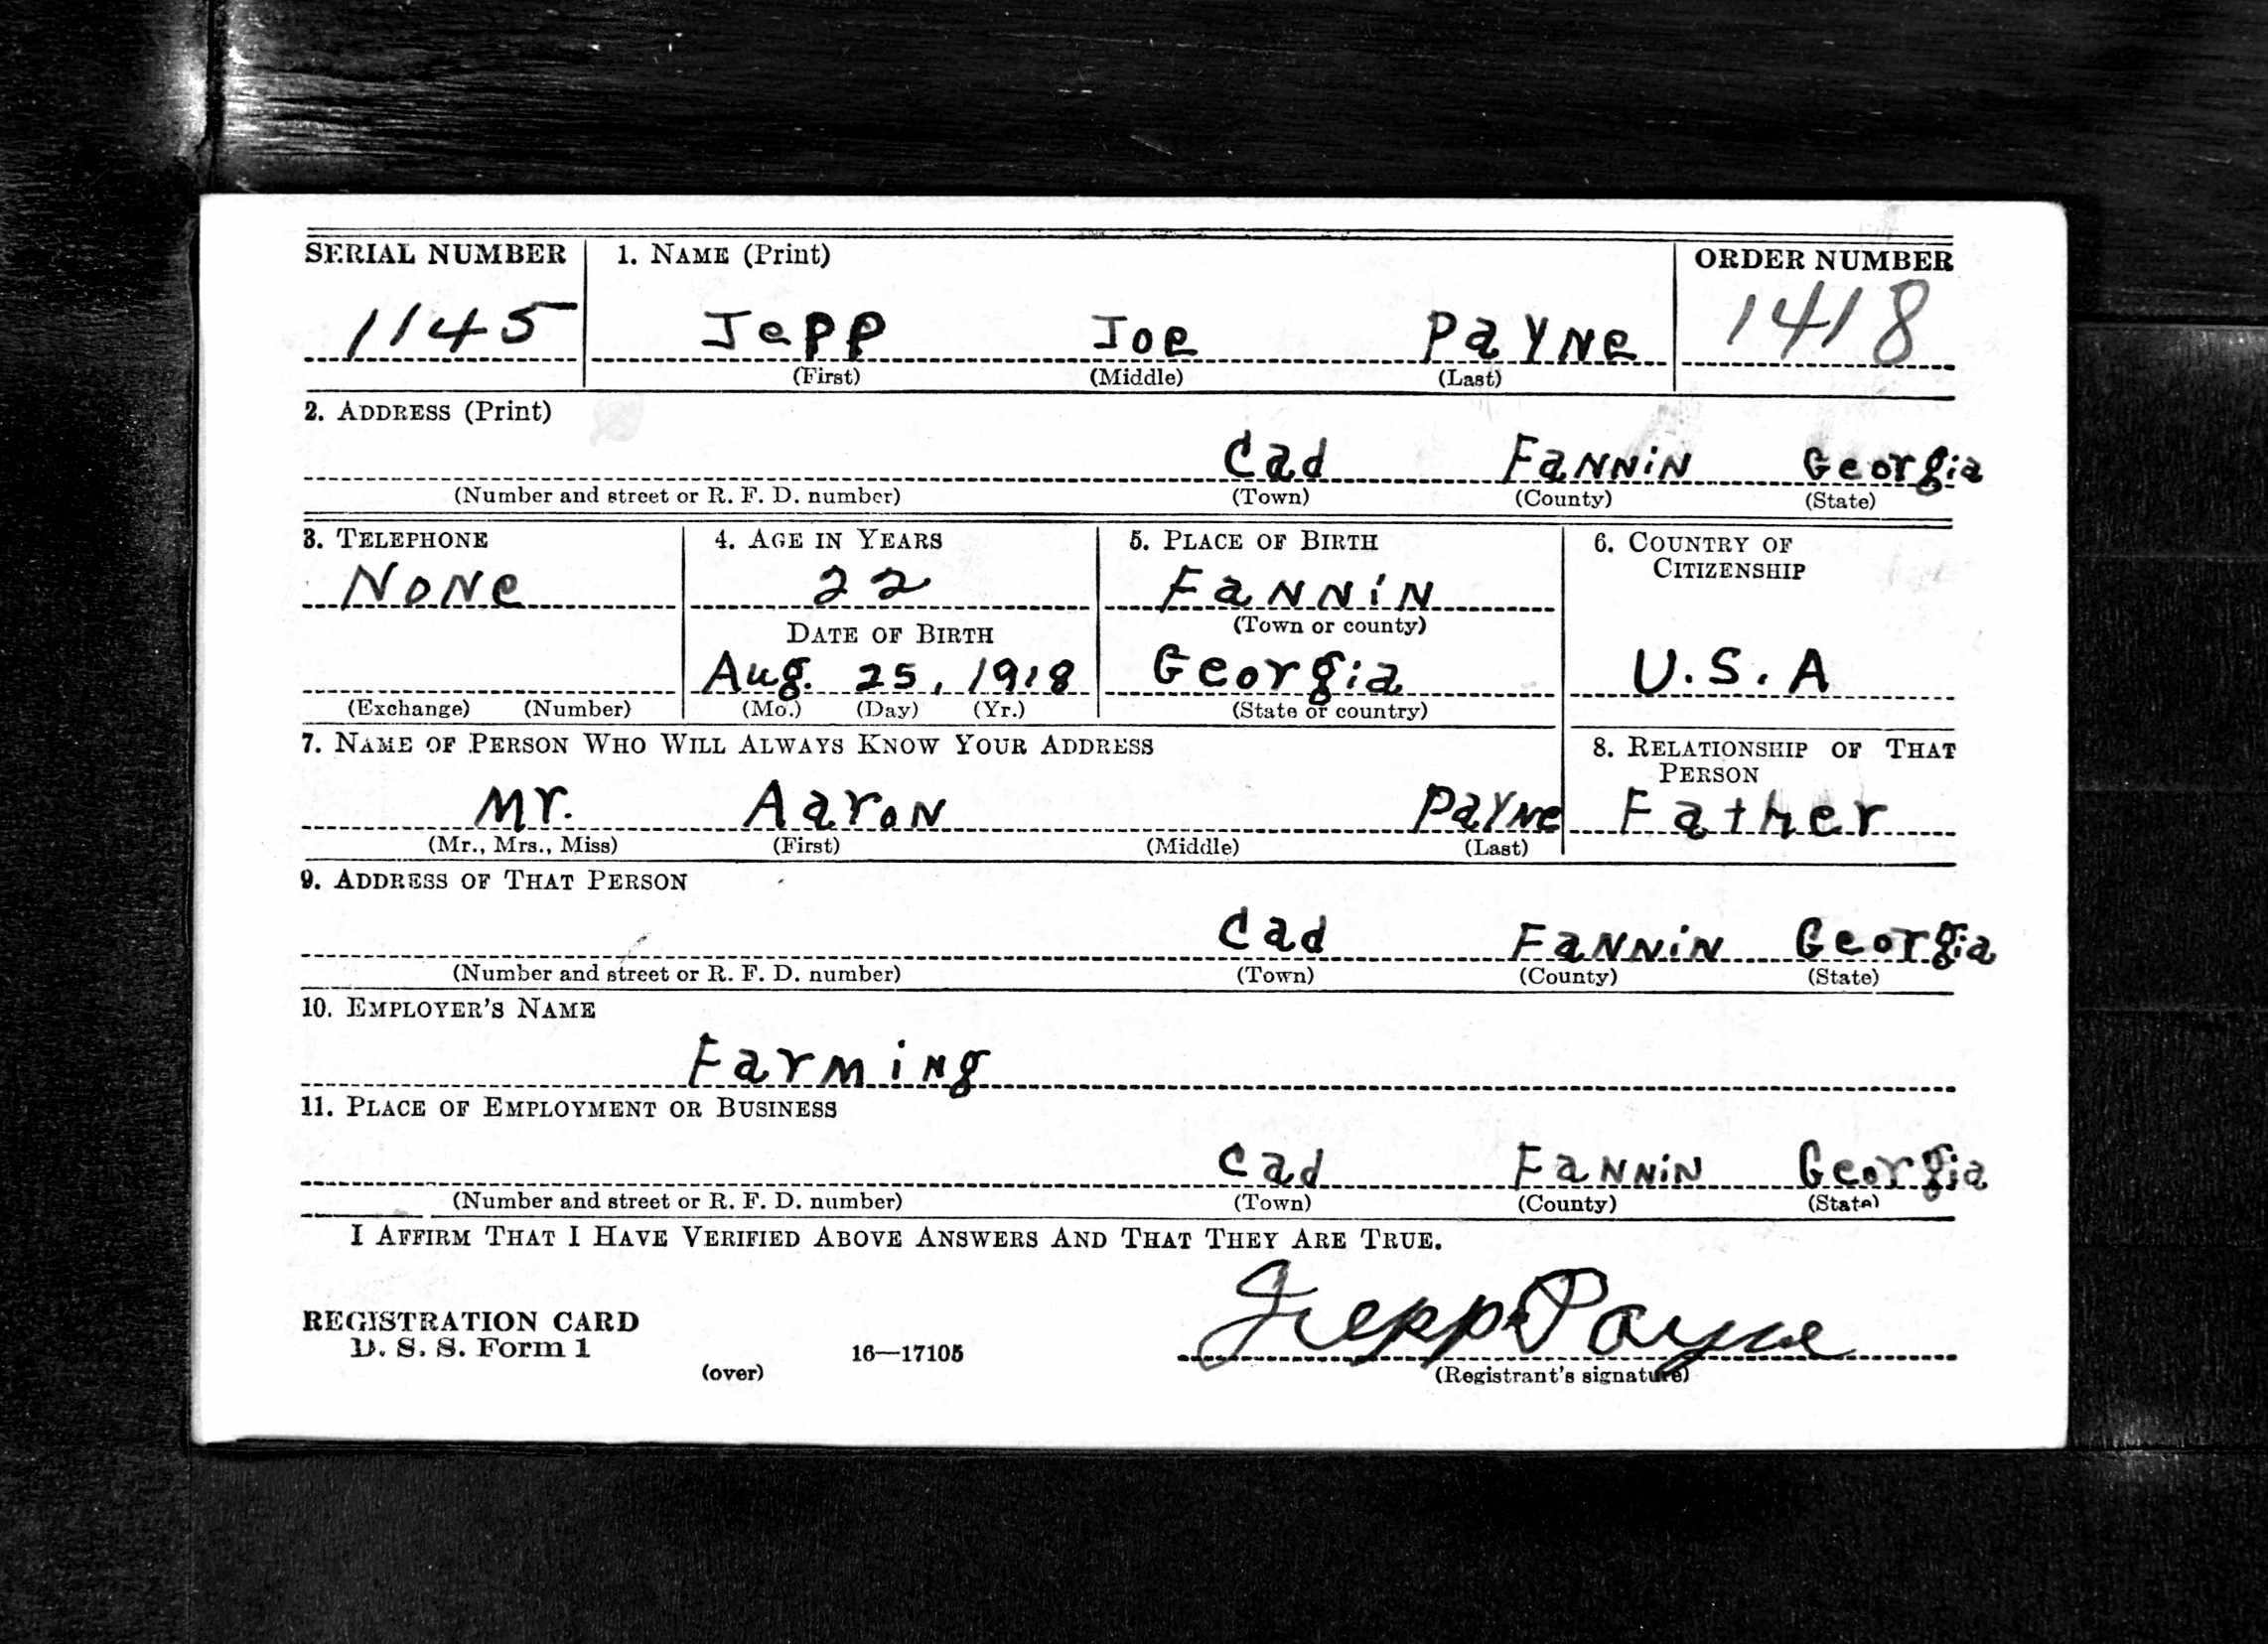 SERIAL NUMBER 1. NAME (Print) ORDER NUMBER
1145 Jepp Joe Payne 1418
(First) (Middle) (Last)
2. ADDRESS (Print)
Cad Fannin Georgia
(Number and street or R. F. D. number) (Town) (County) (State)
3. TELEPHONE 4. AGE IN YEARS 5. PLACE OF BIRTH 6. COUNTRY OF CITIZENSHIP
None 22 Fannin
DATE OF BIRTH (Town or county)
Aug. 25, 1918 Georgia U.S.A
(Exchange) (Number) (Mo.) (Day) (Yr.) (State or country)
7. NAME OF PERSON WHO WILL ALWAYS KNOW YOUR ADDRESS 8. RELATIONSHIP OF THAT PERSON
Mr. Aaron Payne Father
(Mr., Mrs., Miss) (First) (Middle) (Last)
9. ADDRESS OF THAT PERSON
Cad Fannin Georgia
(Number and street or R. F. D. number) (Town) (County) (State)
10. EMPLOYER'S NAME
Farming
11. PLACE OF EMPLOYMENT OR BUSINESS
Cad Fannin Georgia
(Number and street or R. F. D. number) (Town) (County) (State)
I AFFIRM THAT I HAVE VERIFIED ABOVE ANSWERS AND THAT THEY ARE TRUE.
Jepp Payne
REGISTRATION CARD
D. S. S. Form 1 16—17105
(over) (Registrant's signature)